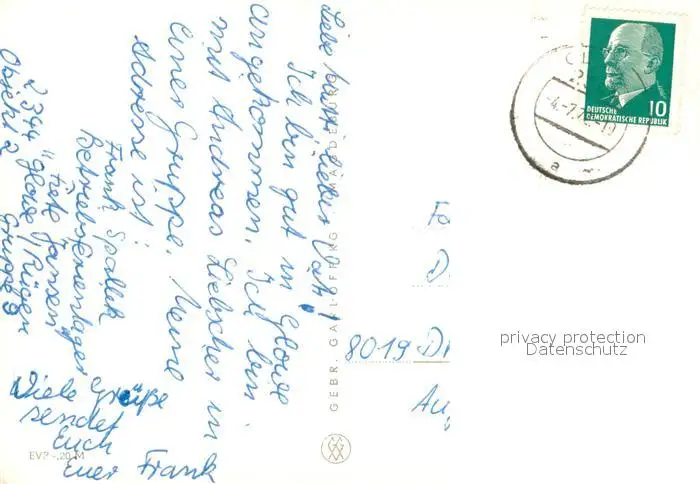 Liebe Mutti, lieber Vati!
Ich bin gut in Glowe
angekommen. Ich bin
mit Andreas Liebscher in
einer Gruppe. Meine
Adresse ist:
Frank Spallek
Betriebsferienlager
"Fiete Jansen"
2344 Glowe/Rügen
Objekt 2 Gruppe 8
Viele Grüße
sendet
Euch
Euer Frank
EVP -,20 M
GEBR. GARLOFF KG, MAGDEBURG
8019 D
Au
DEUTSCHE
DEMOKRATISCHE REPUBLIK
10
-4.-7.7
a
privacy protection
Datenschutz